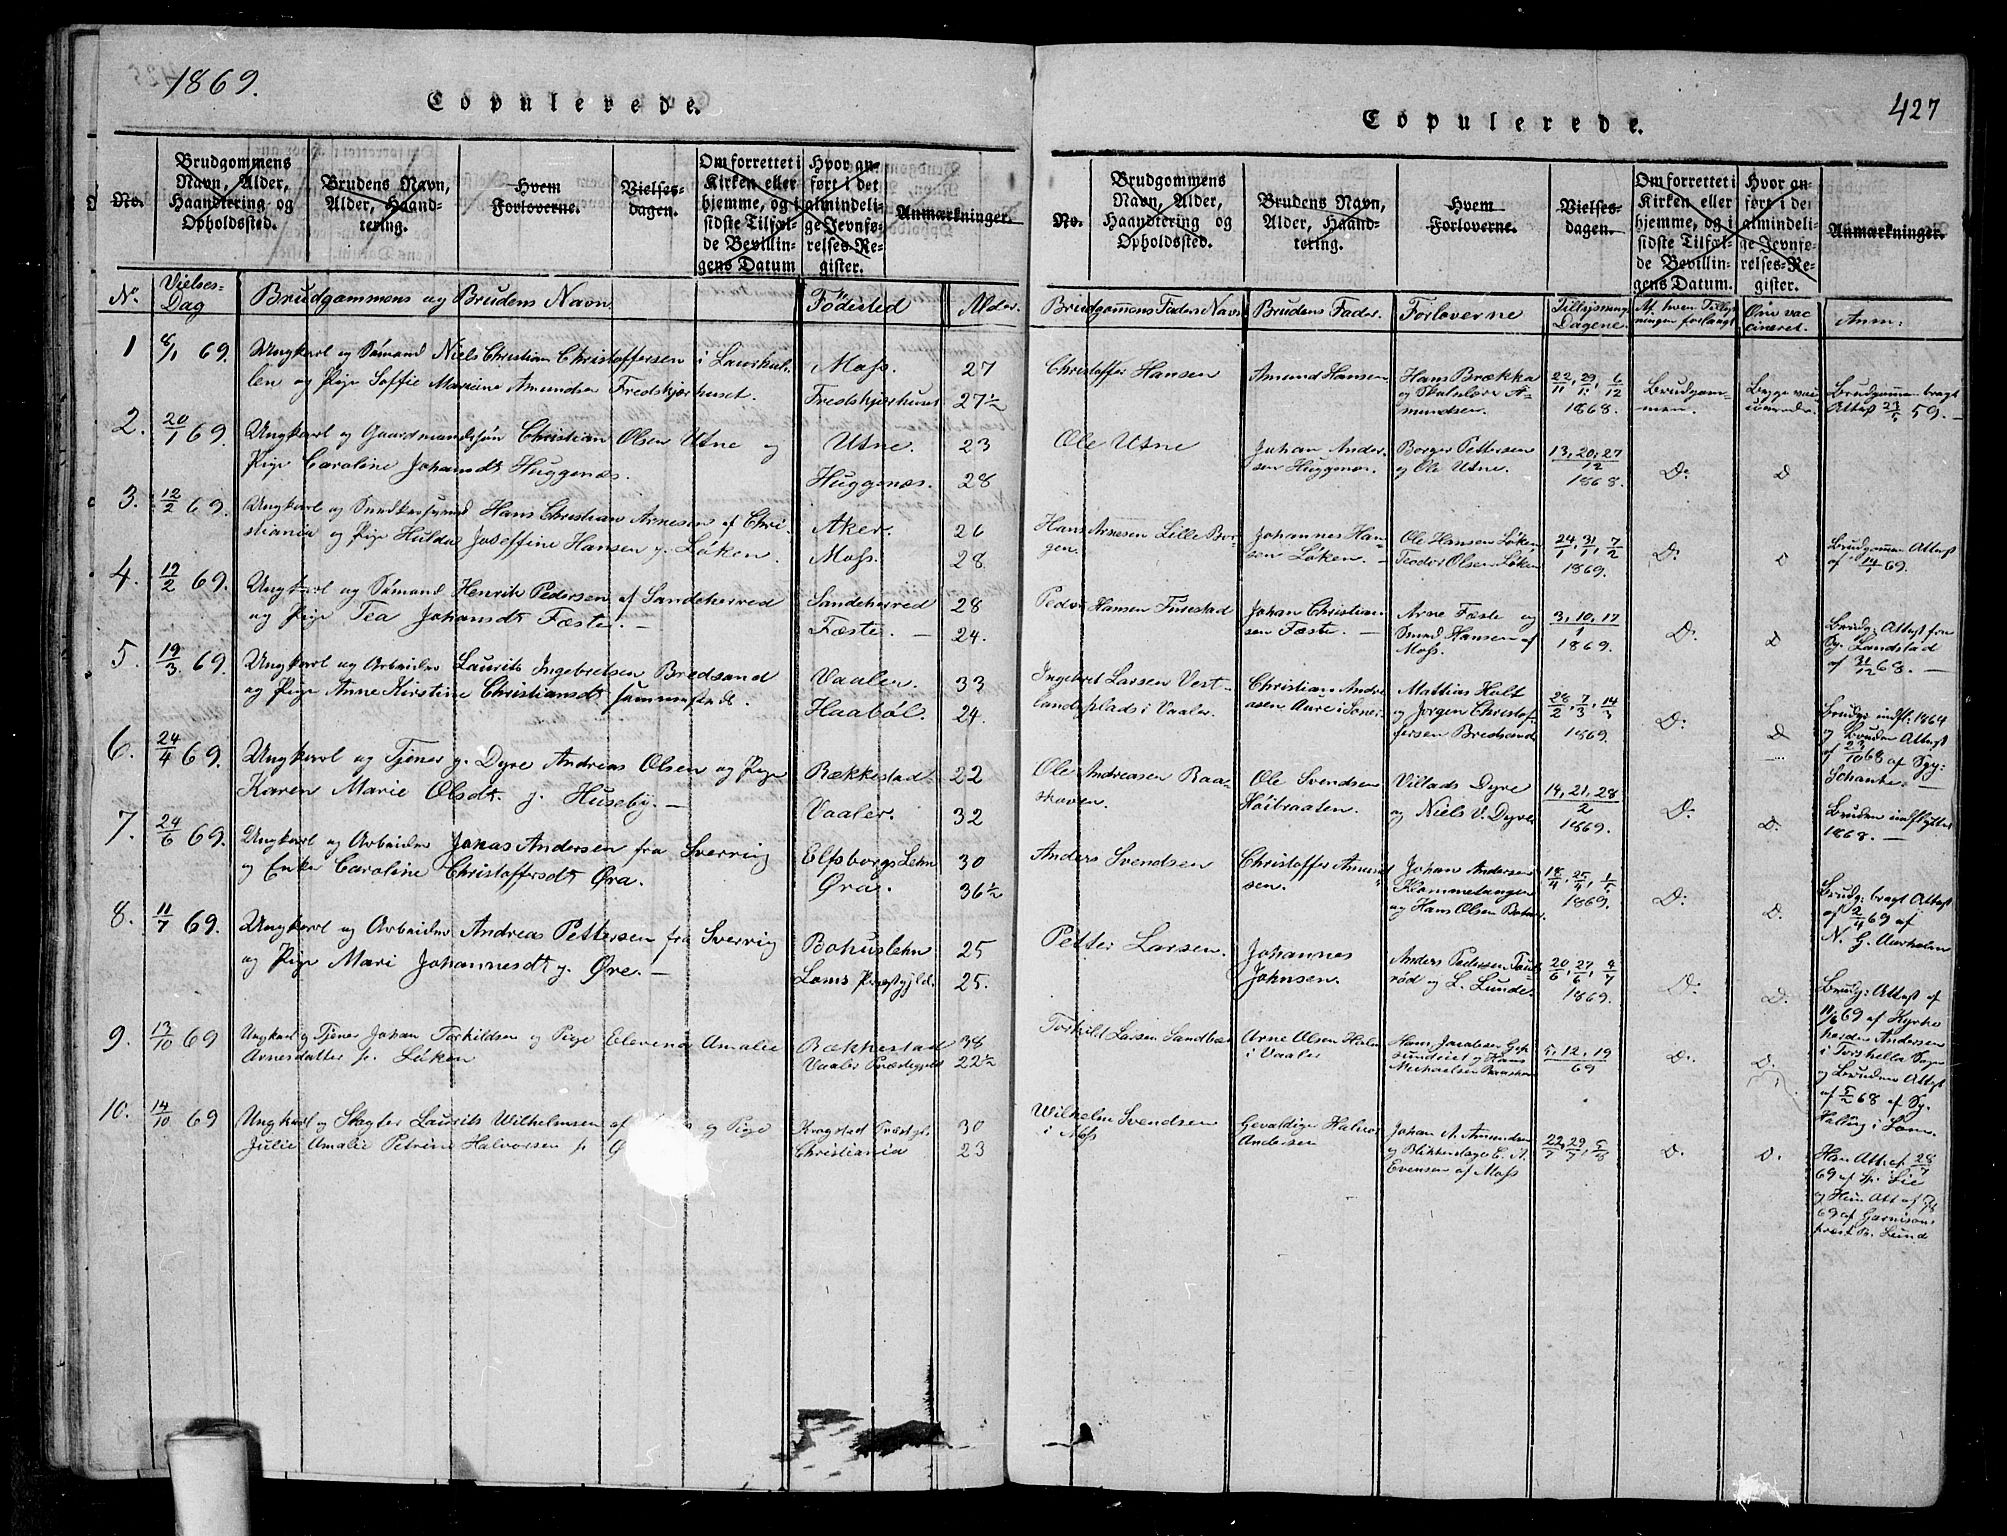 1869.
Copulerede.
No.
Brudgommens Navn, Alder, Haandtering og Opholdssted.
Brudens Navn, Alder, Haandtering.
Hvem Forloverne.
Vielses-dagen.
Om forrettet i Kirken eller hjemme, og i sidste Tilfælde Bevillingens Datum
Hvor anført i det almindelige Jevnførelses-Register.
Anmærkninger.
No. Vielses-Dag Brudgommens og Brudens Navn Fødested Alder.
1 8/1 69. Ungkarl og Sømand Niels Christian Christoffersen i Laurkul- Moss. 27
len og Pige Soffie Marine Amundsen Fredskjærhuset. Fredskjærhuset 27½
2. 20/1 69. Ungkarl og Gaardmandssøn Christian Olsen Utne og Utne. 23
Pige Caroline Johansdt Huggenæs. Huggenæs. 28
3. 12/2 69. Ungkarl og Snedkersvend Hans Christian Arnesen af Chri- Aker. 26
stiania og Pige Hulda Joseffine Hansen p. Løken. Moss. 28.
4. 12/2 69. Ungkarl og Sømand Henrik Pedersen af Sandeherred Sandeherred 28
og Pige Tea Johansdt Fæste. — Fæste. — 24.
5. 19/3 69. Ungkarl og Arbeider Laurits Ingebretsen Bredsand Vaaler. 33
og Pige Anne Kirstine Christiansdt sammesteds. Haabøl. 24.
6. 24/4 69. Ungkarl og Tjener p. Dyre Andreas Olsen og Pige Rækkestad. 22
Karen Marie Olsdt. p. Huseby. — Vaaler. 32
7. 24/6 69. Ungkarl og Arbeider Jonas Andersen fra Sverrig Elfsborgs Lehn 30
og Enke Caroline Christoffersdt Øra. Øra. 36½
8. 11/7 69. Ungkarl og Arbeider Andreas Pettersen fra Sverrig Bohuslehn 25
og Pige Mari Johannesdt p. Øre. — Loms Præstgjld. 25.
9. 13/10 69 Ungkarl og Tjener Johan Torkildsen og Pige Elevine Amalie Rækkestad 38
Arnesdatter p. Løken Vaaler Præstegjeld 22½
10. 14/10 69 Ungkarl og Slagter Laurits Wilhelmsen af og Pige Krogstad Præstgj. 30
Julie Amalie Petrine Halvorsen p. Christiania 23
427
Copulerede.
No.
Brudgommens Navn, Alder, Haandtering og Opholdssted.
Brudens Navn, Alder, Haandtering.
Hvem Forloverne.
Vielses-dagen.
Om forrettet i Kirken eller hjemme, og i sidste Tilfælde Bevillingens Datum.
Hvor anført i det almindelige Jevnførelses-Register.
Anmærkninger.
Brudgommens Faders Navn Brudens Fader. Forloverne Tillysnings Dagene. Af hvem Tillysningen forlangt Om vaccineret. Anm:
Christoffer Hansen Amund Hansen Hans Brække og Amundsen. 22/11, 29/11, 6/12 1868. Brudgommen. Begge vaccinerede. Brudgommen bragt Attest 59. —
Ole Utne Johan Andersen Huggenæs. Borger Pettersen og Ole Utne. 13, 20, 27/12 1868. Do d
Hans Arnesen Lille Borgen. Johannes Hansen Løken. Ole Hansen Løken Teodor Olsen Løken 24/1, 31/1, 7/2 1869. D: d Brudgommen Attest af 14/1 69.
Peder Hansen Furestad Johan Christiansen Fæste. — Arne Fæste og Smed Hansen af Moss. 3, 10, 17/1 1869. D. d Brudg. Attest fra Sp. Landstad af 31/12 68. —
Ingebret Larsen Vestlandsplads i Vaaler. Christian Andreasen Aure i Soner Mattias Hult og Jørgen Christoffersen Bredsand 28/2, 7/3, 14/3 1869. D: d Brudg: indfl: 1864 og Bruden Attest af 23/10 68 af Sp: Schanke. —
Ole Andreasen Baaskoven. Ole Svendsen Høibraaten. Villads Dyre og Niels V. Dyre 14, 21, 28/2 1869. D. D. Bruden indflyttet 1868. —
Anders Svendsen Christoffer Amundsen. Johan Andersen Klommetangen og Hans Olsen 18/4, 25/4, 1869. D: D. Brudg: bragt Attest af 2/4 69 af N. G. Aurholm
Petter Larsen. Johannes Johnsen. Anders Pedersen og L. Lunde. 20/6, 27/6, 4/7 1869. D: D. Brudg: Attest af 11/6 69 af Kyrkoherden Andersen i Torskella Sogn og Bruden Attest af 5/2 68 af Sp. Halling i Lom.
Torkild Larsen Sandbæk Arne Olsen i Vaaler Hans Jacobsen og Hans Michaelsen 5, 12, 19/ 69 D. D.
Wilhelm Svendsen i Moss Gevaldiger Halvor Andersen Johan A. Amundsen og Blikkenslager E. A. Evensen af Moss 22/, 29/, D. D. Han Att. af 28/7 69 af Sp. Lie og Hun Att. af 7/8 69 af Garnisonsprest Lund